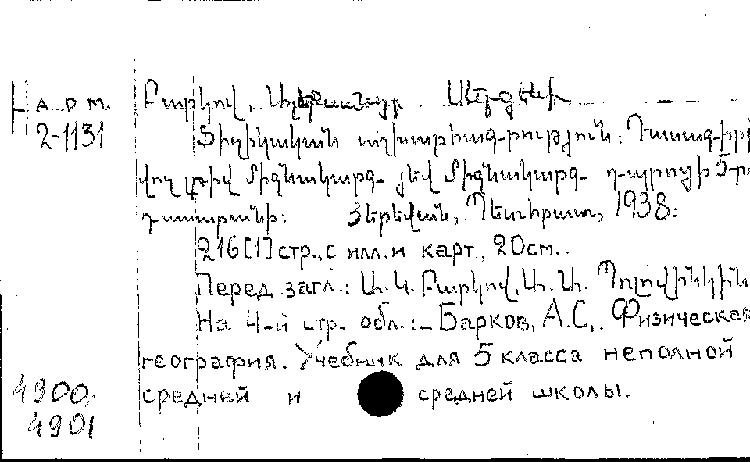 Арм. Բարկով, Ալեքսանդր Սերգեևի
2-1131 Ֆիզիկական աշխարհագրություն: Դասագիրք
միջնակարգ միջնակարգ դպրոցի 5-րդ
դասարանի: Յերեվան, Պետհրատ, 1938:
216[1]стр., с илл. и карт, 20см..
Перед загл.: Ա. Ս. Բարկով, Ա. Ա. Պոլովինկին
На 4-й стр. обл.: Барков, А.С. Физическая
география. Учебник для 5 класса неполной
4900, средней и средней школы.
4901